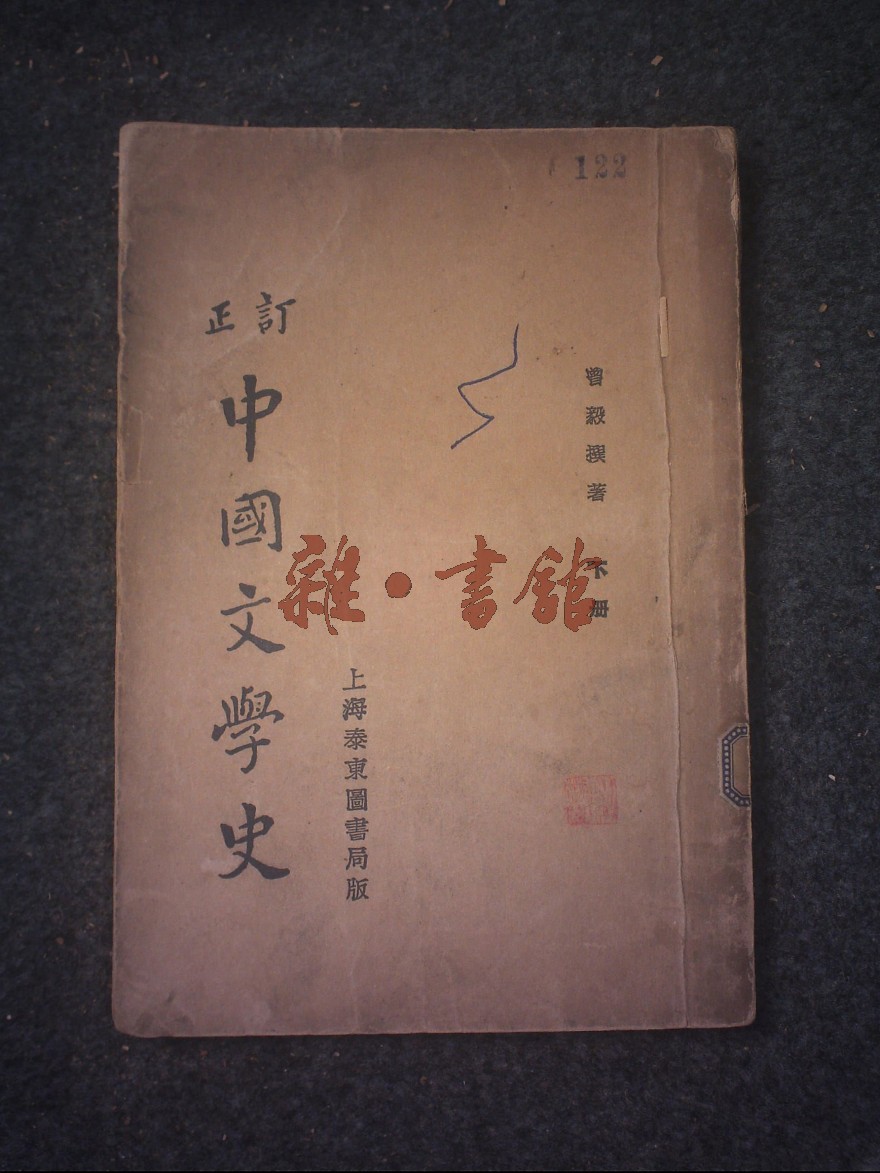 122
曾毅撰著 下册
訂正
中國文學史
上海泰東圖書局版
雜·書館